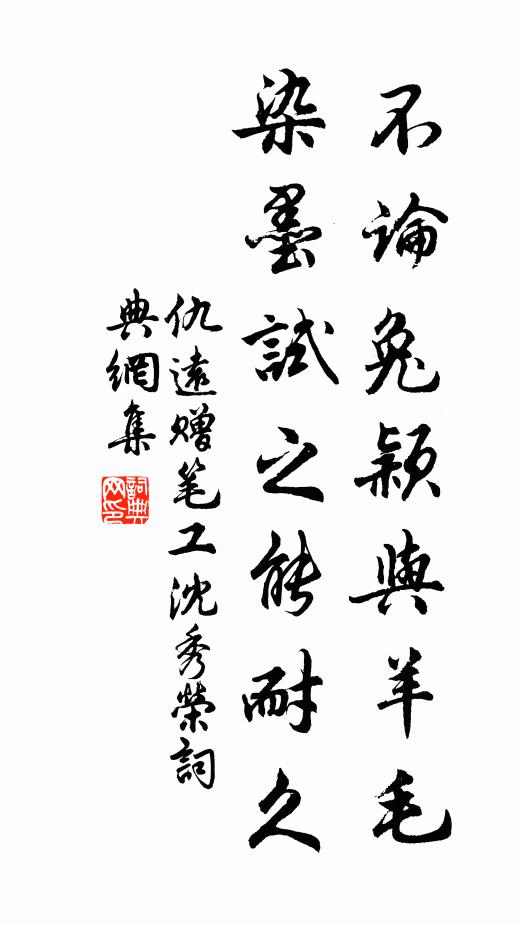 不論兔潁與羊毛
染墨試之能耐久
仇遠贈笔工沈秀榮詞
典網集
詞典网印